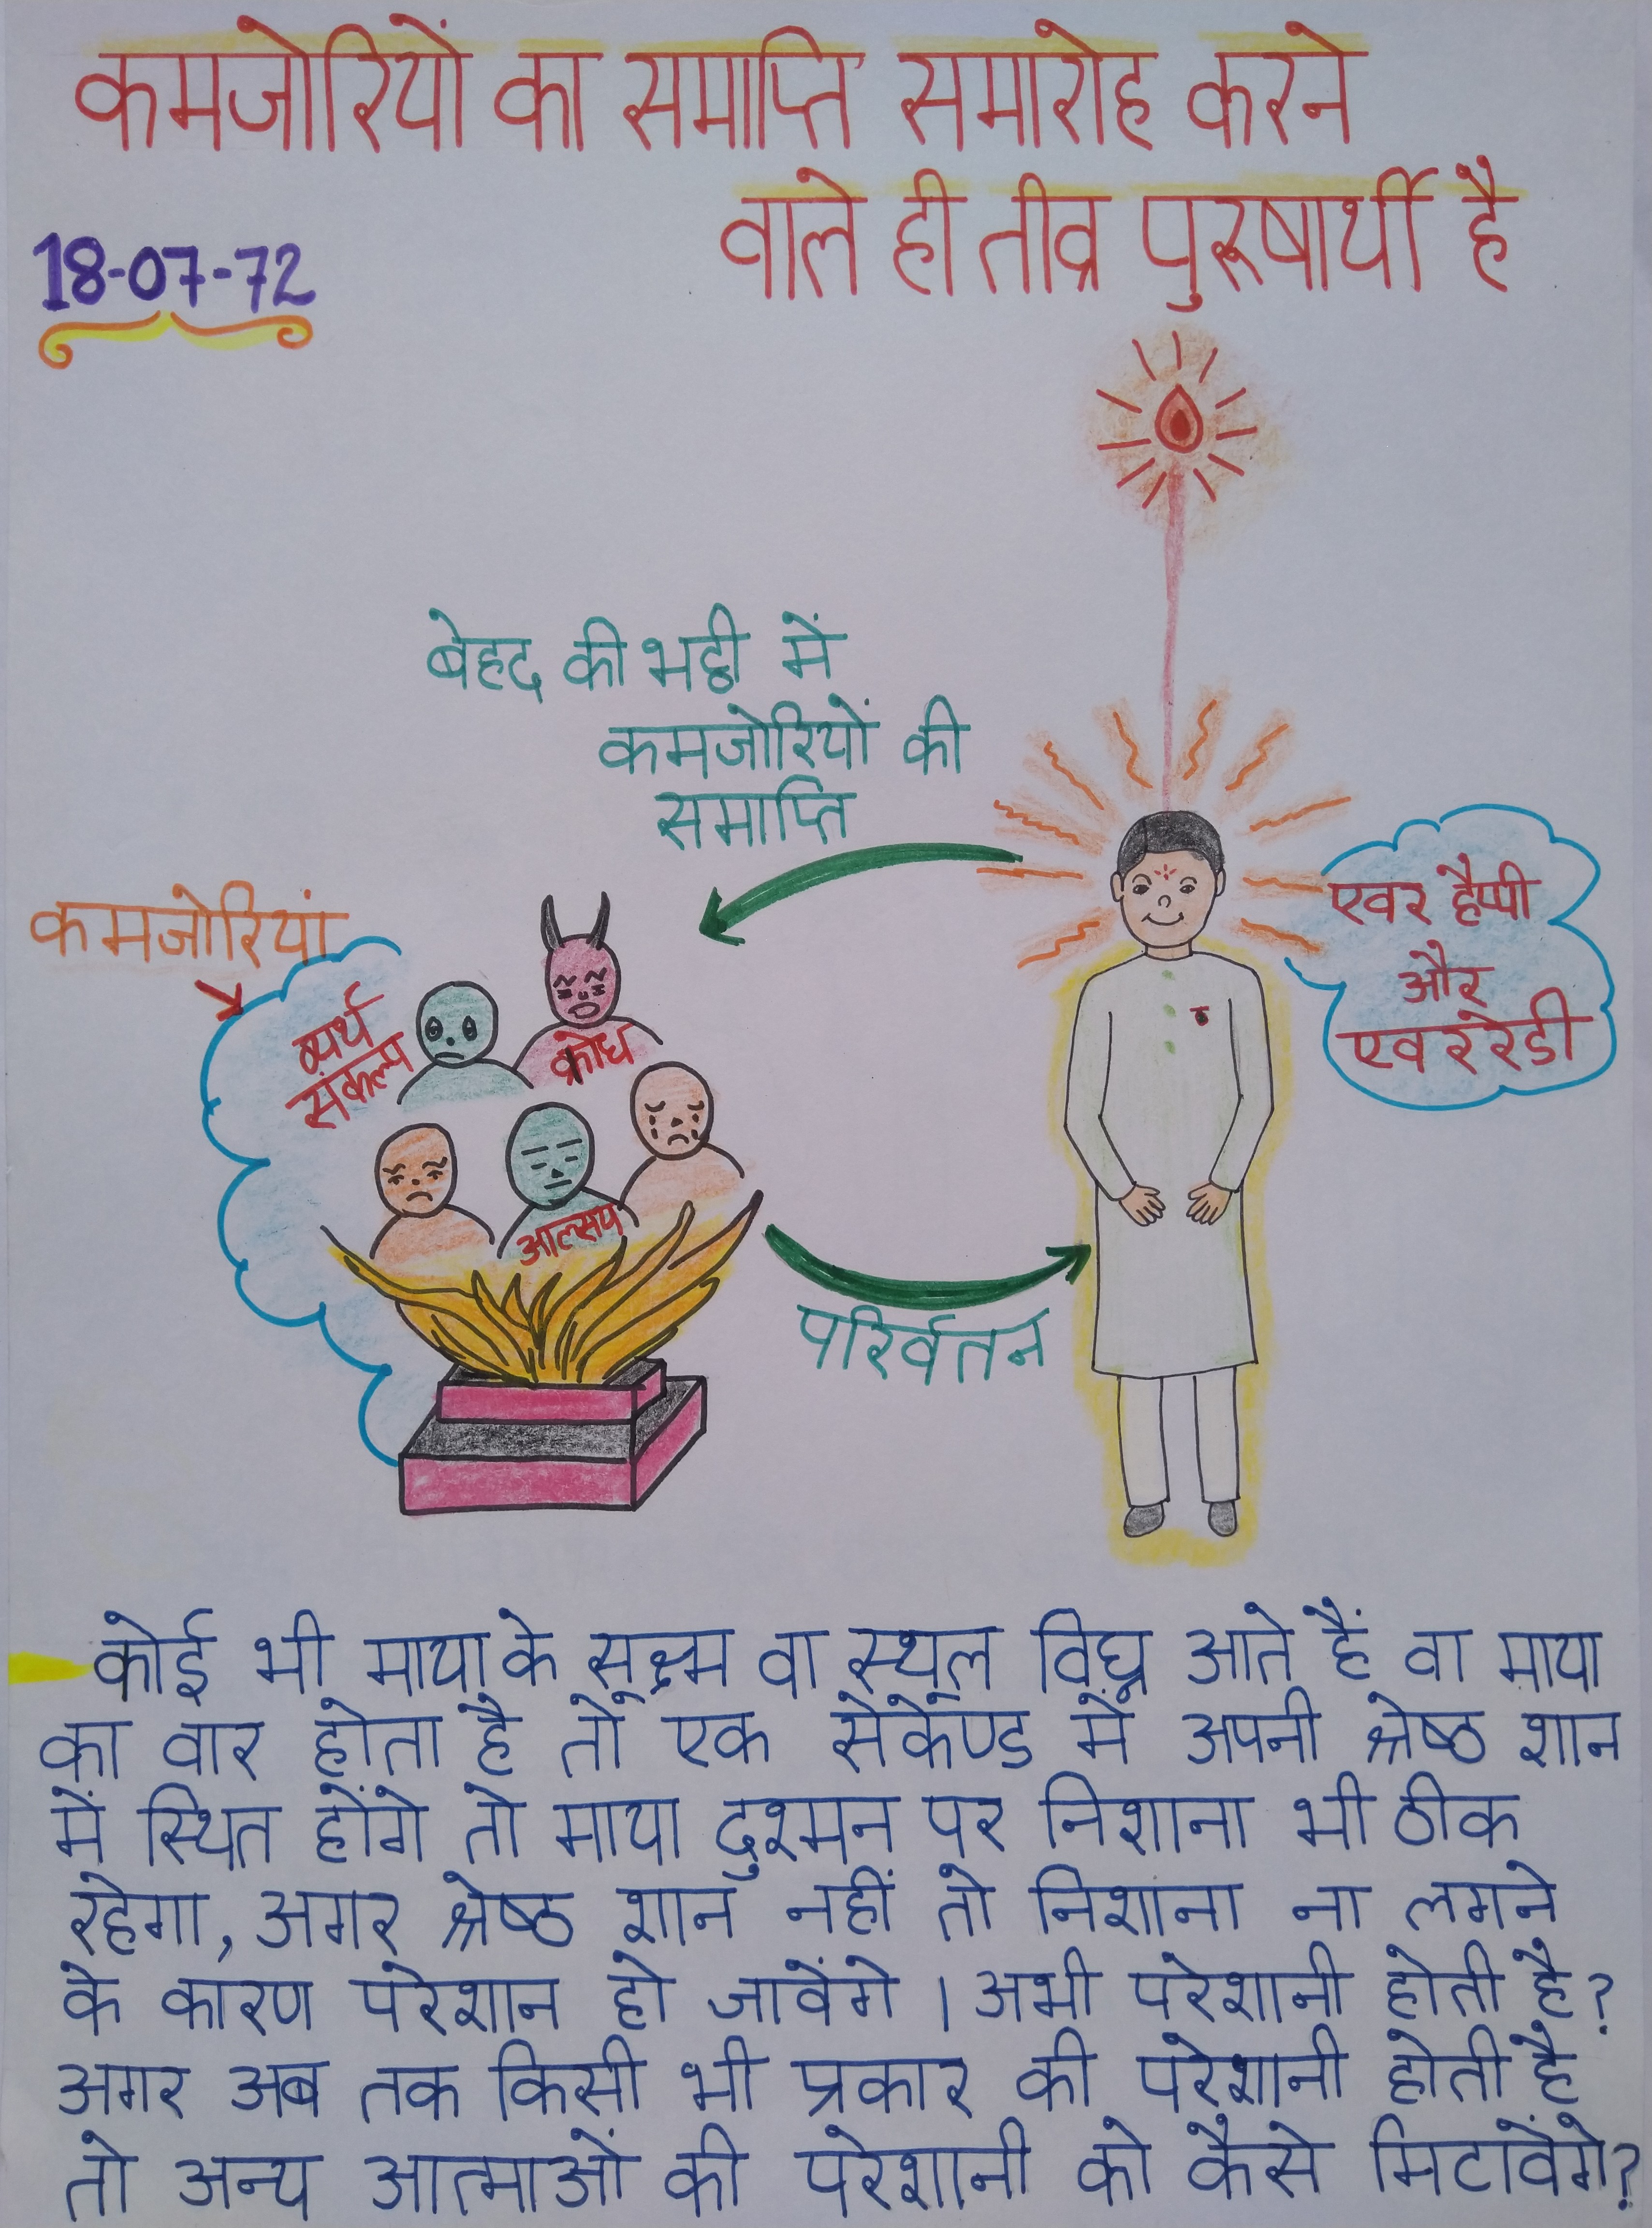 कमजोरियों का समाप्ति समारोह करने
वाले ही तीव्र पुरूषार्थी है
18-07-72
बेहद की भट्ठी में
कमजोरियों की
समाप्ति
कमजोरियां
व्यर्थ
संकल्प
क्रोध
आल्सय
एवर हैप्पी
और
एवररेडी
परिर्वतन
कोई भी माया के सूक्ष्म वा स्थूल विघ्न आते हैं वा माया
का वार होता है तो एक सेकेण्ड में अपनी श्रेष्ठ शान
में स्थित होंगे तो माया दुश्मन पर निशाना भी ठीक
रहेगा, अगर श्रेष्ठ शान नहीं तो निशाना ना लगने
के कारण परेशान हो जावेंगे । अभी परेशानी होती है?
अगर अब तक किसी भी प्रकार की परेशानी होती है
तो अन्य आत्माओं की परेशानी को कैसे मिटावेंगे?